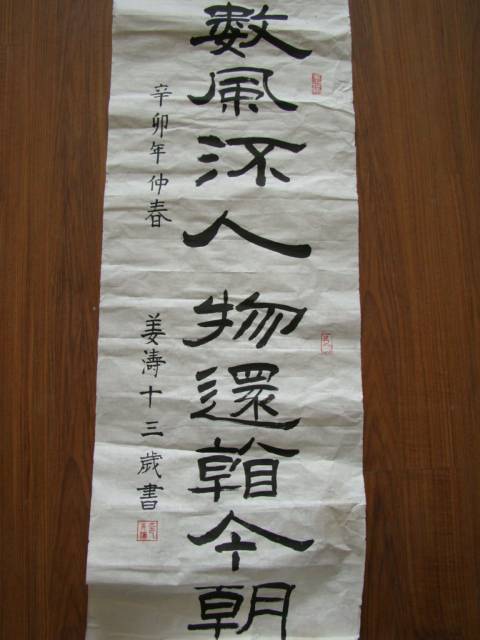 數風流人物還看今朝
辛卯年仲春 姜濤十三歲書